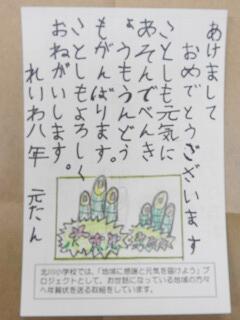 あけまして
おめでとうございます
ことしも元気に
あそんでべんき
ょうもうんどう
もがんばります。
ことしもよろしく
おねがいします。
れいわ八年 元たん
北川小学校では、「地域に感謝と元気を届けよう」プ
ロジェクトとして、お世話になっている地域の方々
へ年賀状を送る取組をしています。